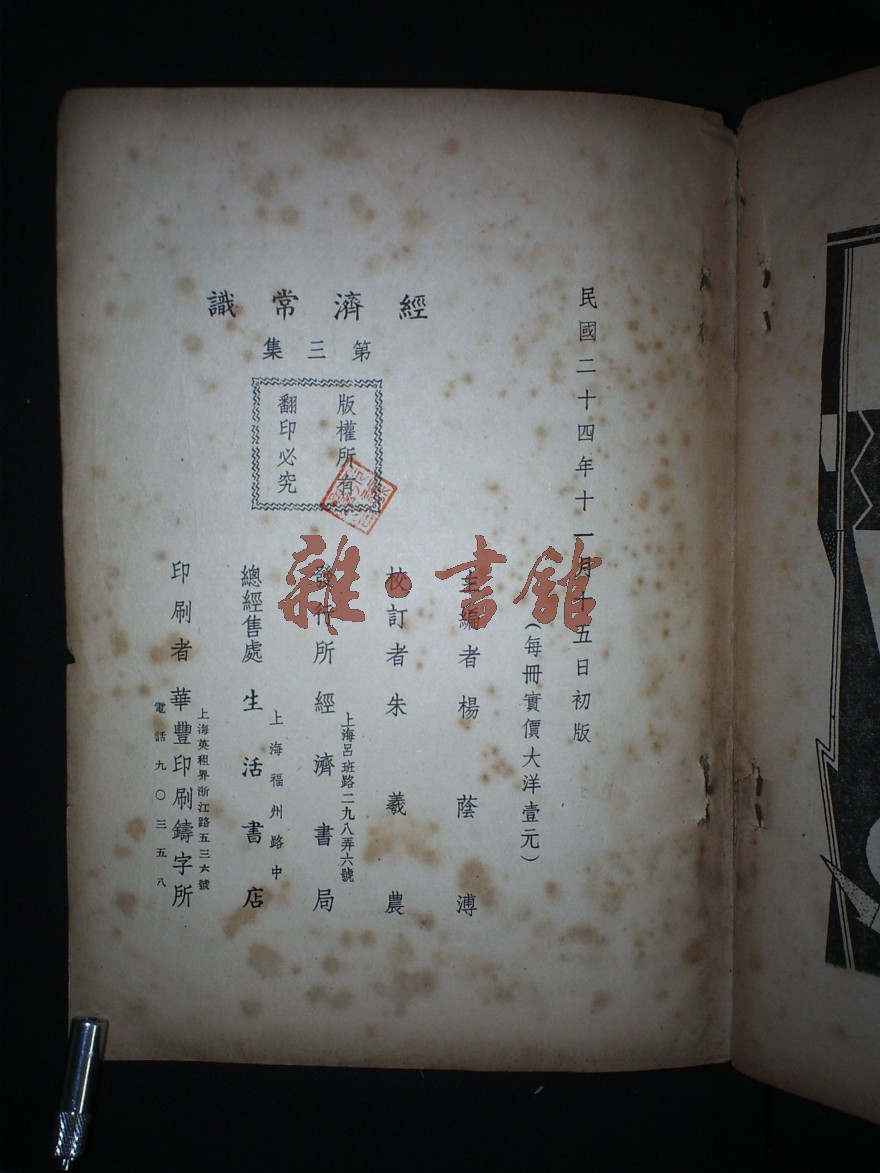 民國二十四年十一月十五日初版
(每冊實價大洋壹元)
經濟常識
第三集
版權所有
翻印必究
主編者 楊蔭溥
校訂者 朱羲農
發行所 經濟書局
上海呂班路二九八弄六號
總經售處 生活書店
上海福州路中
印刷者 華豐印刷鑄字所
上海英租界浙江路五三六號
電話九〇三五八
雜·書館